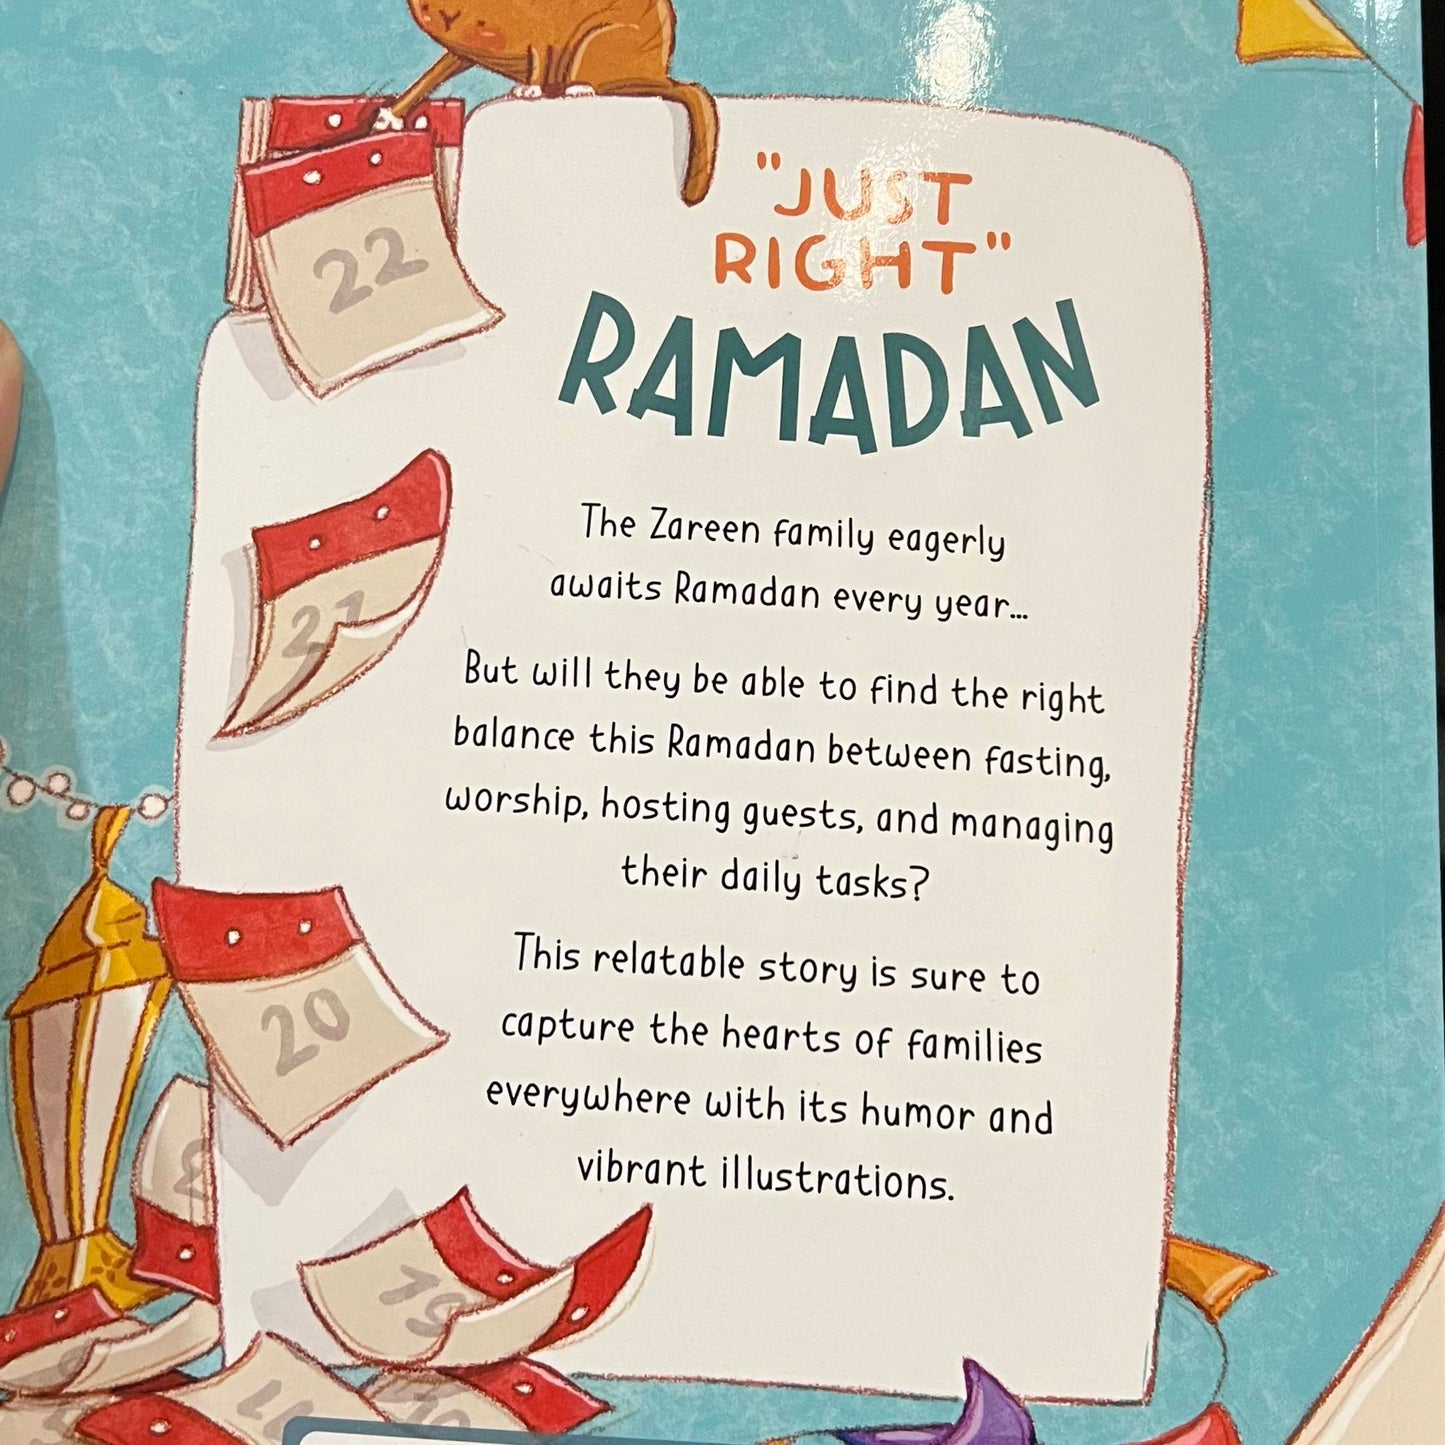 "JUST
RIGHT"
RAMADAN
22
21
The Zareen family eagerly
awaits Ramadan every year...
But will they be able to find the right
balance this Ramadan between fasting,
worship, hosting guests, and managing
their daily tasks?
20
This relatable story is sure to
capture the hearts of families
everywhere with its humor and
vibrant illustrations.
19